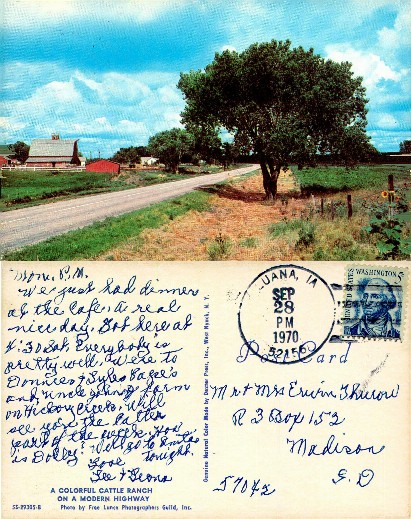 Mon. P.M.
We just had dinner
at the Cafe, a real
nice day. Got here at
4:30 Sat. Everybody is
pretty well. Were to
Donnies &
and Uncle Johnny farm
on Hickory Circle. Will
see you the latter
part of the week. How
is Dolly? Will go to
tonight.
Love
Lee & Leona
A COLORFUL CATTLE RANCH
ON A MODERN HIGHWAY
SS-29305-B Photo by Free Lance Photographers Guild, Inc.
Genuine Natural Color Made by Dexter Press, Inc., West Nyack, N. Y.
Post Card
UANA, IA
SEP
28
PM
1970
52156
WASHINGTON 5¢
UNITED STATES
Mr & Mrs Erwin Thurow
R 3 Box 152
Madison
57042 S. D